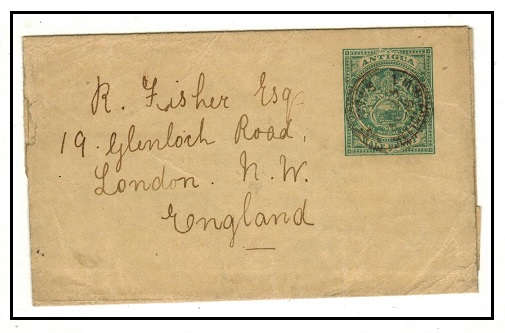 ANTIGUA
R. Fisher Esq
19. Glenloch Road,
London. N. W.
England